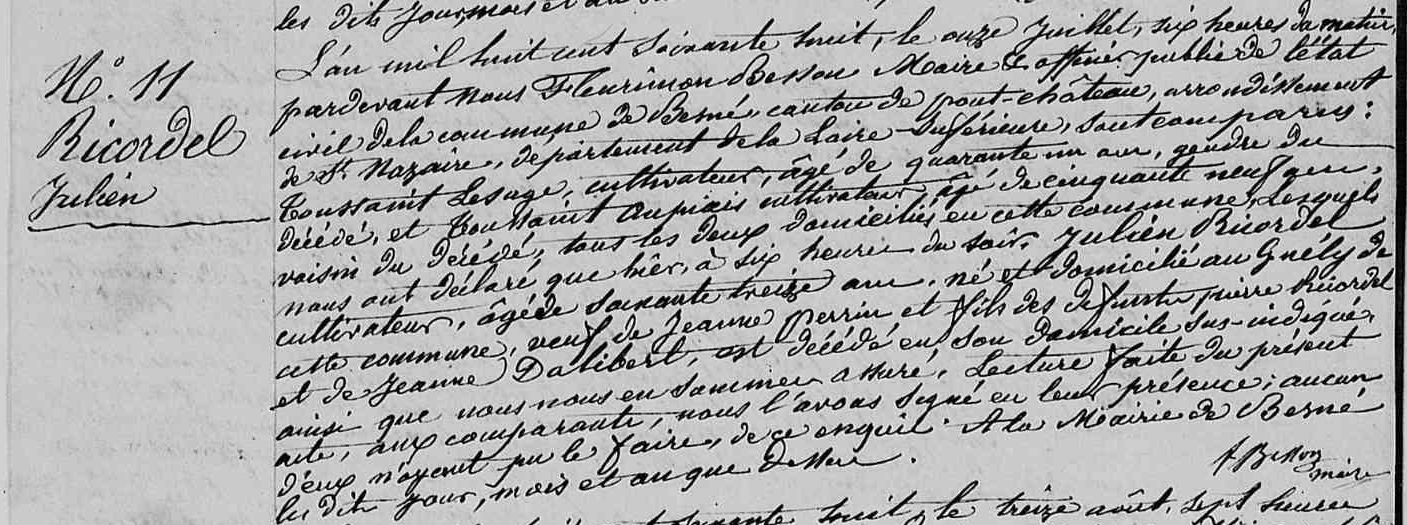 les dits jour, mois et an
N° 11
Ricordel
Julien
L'an mil huit cent soixante huit, le onze Juillet, six heures du matin,
pardevant nous Fleurimon Besson Maire & officier public de l'état
civil de la commune de Besné, canton de pont-château, arrondissement
de St Nazaire, département de la Loire-Inférieure, sont comparus :
Toussaint Lesage, cultivateur, âgé de quarante un ans, gendre du
décédé, et Toussaint Aupiais cultivateur, âgé de cinquante neuf ans,
voisin du décédé, tous les deux domiciliés en cette commune, Lesquels
nous ont déclaré que hier, à six heures du soir, Julien Ricordel
cultivateur, âgé de soixante treize ans, né et domicilié au Gnély de
cette commune, veuf de Jeanne perrin et fils des defunts pierre Ricordel
et de Jeanne Dalibert, est décédé en son domicile sus-indiqué,
ainsi que nous nous en sommes assuré. Lecture faite du présent
acte, aux comparants, nous l'avons signé en leur présence ; aucun
d'eux n'ayant pu le faire, de ce enquis. A la Mairie de Besné
les dits jour, mois et an que dessus.
Besson
maire
soixante huit, le treize août, sept heures